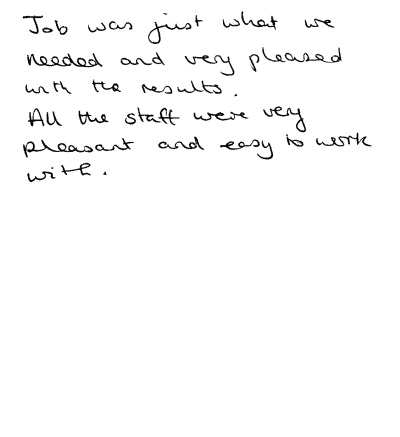 Job was just what we
needed and very pleased
with the results.
All the staff were very
pleasant and easy to work
with.